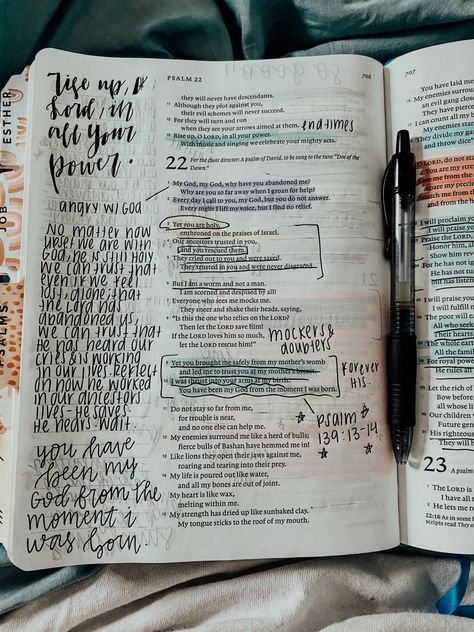 PSALM 22
706
Rise up,
Lord, in
all Your
power.
angry w/ God
No matter how
upset we are with
God, he is still holy.
we can trust that
even if we feel
lost, alone, that
the Lord has
abandoned us,
we can trust that
He has heard our
cries & is working
in our lives. Reflect
on how he worked
in our ancestors
lives - He saves.
He hears. Wait.
you have
been my
God from the
moment i
was born
ESTHER
JOB
PSALMS
they will never have descendants.
11 Although they plot against you,
their evil schemes will never succeed.
12 For they will turn and run
when they see your arrows aimed at them.
endtimes
13 Rise up, O LORD, in all your power.
With music and singing we celebrate your mighty acts.
22 For the choir director: A psalm of David, to be sung to the tune "Doe of the
Dawn."
1 My God, my God, why have you abandoned me?
Why are you so far away when I groan for help?
2 Every day I call to you, my God, but you do not answer.
Every night I lift my voice, but I find no relief.
3 Yet you are holy,
enthroned on the praises of Israel.
4 Our ancestors trusted in you,
and you rescued them.
5 They cried out to you and were saved.
They trusted in you and were never disgraced.
6 But I am a worm and not a man.
I am scorned and despised by all!
7 Everyone who sees me mocks me.
They sneer and shake their heads, saying,
8 "Is this the one who relies on the LORD?
Then let the LORD save him!
If the LORD loves him so much,
let the LORD rescue him!"
mockers &
doubters
9 Yet you brought me safely from my mother's womb
and led me to trust you at my mother's breast.
10 I was thrust into your arms at my birth.
You have been my God from the moment I was born.
Forever
His.
psalm
139:13-14
11 Do not stay so far from me,
for trouble is near,
and no one else can help me.
12 My enemies surround me like a herd of bulls;
fierce bulls of Bashan have hemmed me in!
13 Like lions they open their jaws against me,
roaring and tearing into their prey.
14 My life is poured out like water,
and all my bones are out of joint.
My heart is like wax,
melting within me.
15 My strength has dried up like sunbaked clay.
My tongue sticks to the roof of my mouth.
707
You have laid me
16 My enemies surround
an evil gang closes
They have pierced
17 I can count all my b
My enemies stare
18 They divide my
and throw dice
O LORD, do not stay
You are my
Snatch me from
I will proclaim
I will praise
Praise the LORD
Honor him,
Show him
For he has not
He has not
I will praise
I will fulfill
The poor will
All who seek
Their hearts
The whole
All the families
For royal power
He rules all
Let the rich
Bow before
all whose
Our children
Future gener
His righteous
They will
23
The LORD is
2 He lets me re
22:16 As in some
scripts read They